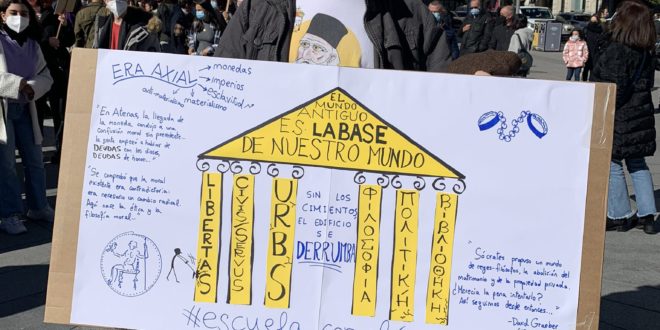 ERA AXIAL
monedas
imperios
esclavitud
antimaterialismo
materialismo
"En Atenas, la llegada de
la moneda condujo a una
confusión moral sin precedente...
la gente empezó a hablar de
DEUDAS con los dioses,
DEUDAS de honor..."
"Se comprobó que la moral
existente era contradictoria:
era necesario un cambio radical.
Aquí nace la ética y la
filosofía moral."
EL
MUNDO
ANTIGUO
ES LA BASE
DE NUESTRO MUNDO
LIBERTAS
CIVIS/SERVUS
URBS
SIN LOS
CIMIENTOS
EL EDIFICIO
SE
DERRUMBA
ΦΙΛΟΣΟΦΙΑ
ΠΟΛΙΤΙΚΗ
ΒΙΒΛΙΟΘΗΚΗ
"Sócrates propuso un mundo
de reyes-filósofos, la abolición del
matrimonio y de la propiedad privada.
¿Merecía la pena intentarlo?
Así seguimos desde entonces..."
-David Graeber
#escuela